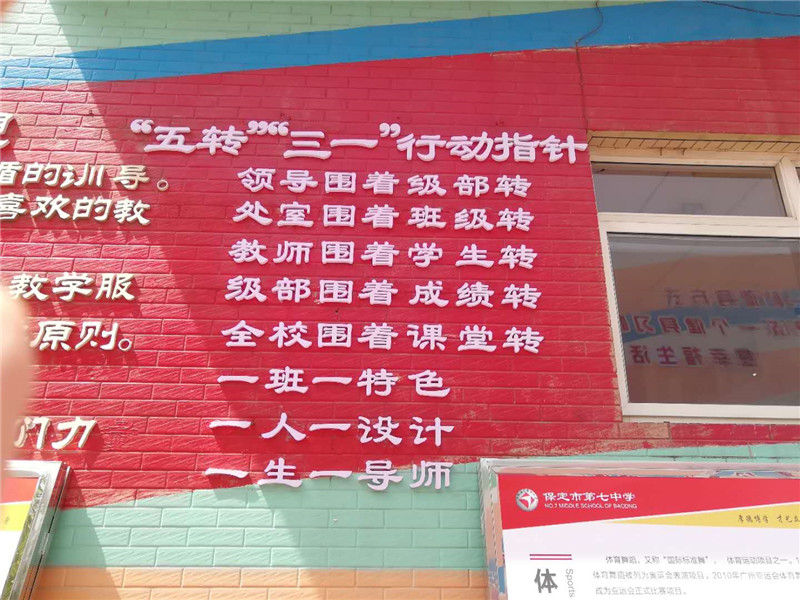 “五转”“三一”行动指针
领导围着级部转
处室围着班级转
教师围着学生转
级部围着成绩转
全校围着课堂转
一班一特色
一人一设计
一生一导师
的训导。
喜欢的教
教学服
原则。
力
保定市第七中学
NO.7 MIDDLE SCHOOL OF BAODING
体
Sports
体育舞蹈，又称“国际标准舞”，体育运动项目之一，
体育舞蹈被列为奥运会表演项目，2010年广州亚运会体育舞
成为亚运会正式比赛项目。